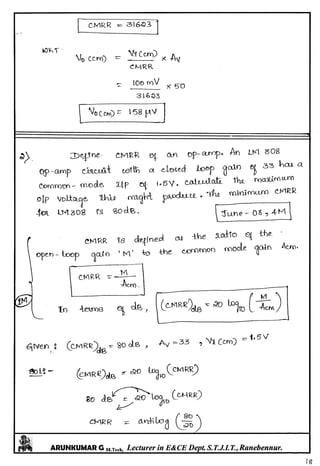 CMRR = 31603
W.K.T
Vo (cm) = VI (cm) / CMRR x Av
= 100 mV / 31603 x 50
Vo (cm) = 158 µV
2) Define CMRR of an op-amp. An LM 308
op-amp circuit with a closed loop gain of 33 has a
Common-mode I/p of 1.5V. calculate the maximum
o/p voltage this might produce. The minimum CMRR
for LM308 is 80dB.
June - 08, 4M
CMRR is defined as the ratio of the
open-loop gain 'M' to the common mode gain Acm.
CMRR = M / Acm.
1M
In terms of dB, (CMRR)dB = 20 log10 (M / Acm)
Given : (CMRR)dB = 80 dB, Av = 33, VI (cm) = 1.5V
Sol:- (CMRR)dB = 20 log10 (CMRR)
80 dB = 20 log10 (CMRR)
CMRR = antilog (80 / 20)
ARUNKUMAR G M.Tech, Lecturer in E&CE Dept. S.T.J.I.T., Ranebennur.
18